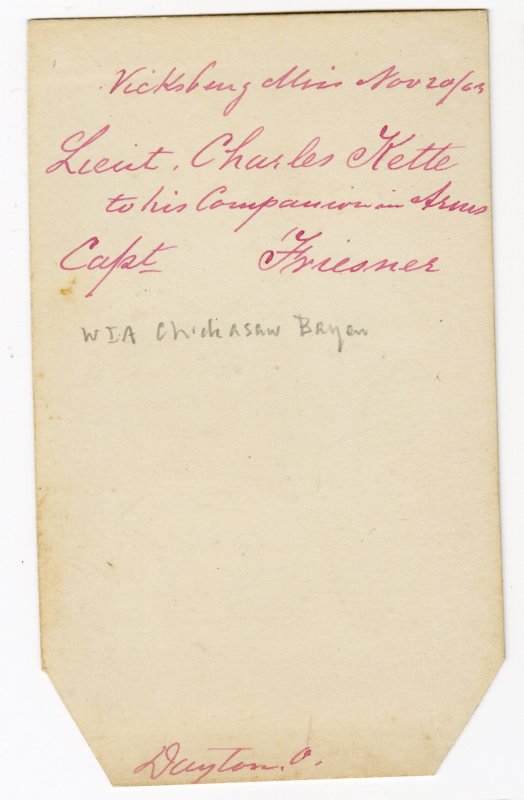 Vicksburg Miss Nov 20/63
Lieut. Charles Kette
to his Companion in Arms
Capt Friesner
WIA Chickasaw Bayou
Dayton. O.